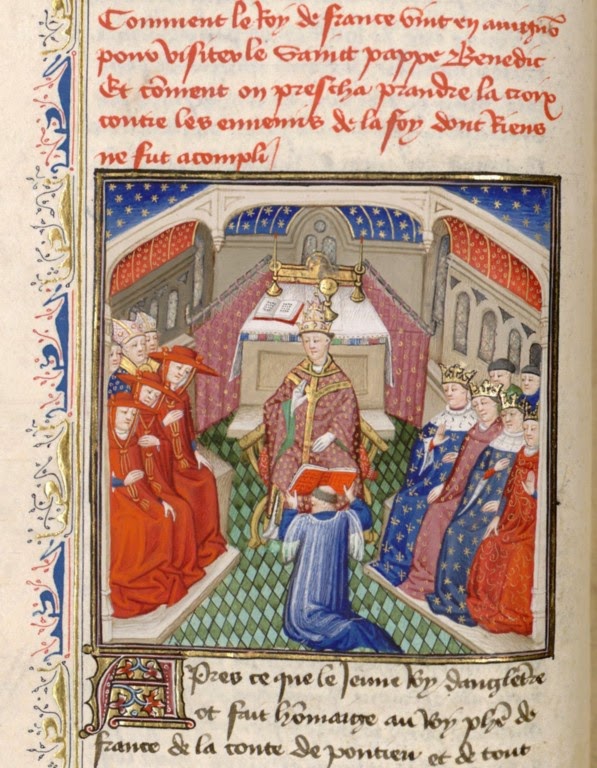 Comment le Roy de france vint en avignõ
pour visiter le Sainct pappe Benedic
Et cõment on prescha prandre la croix
contre les ennemis de la foy dont Riens
ne fut acompli
Apres ce que le Jeune Roy dangletẽre
ot fait hõmaige au Roy phẽ de
france de la conte de pontieu et de tout